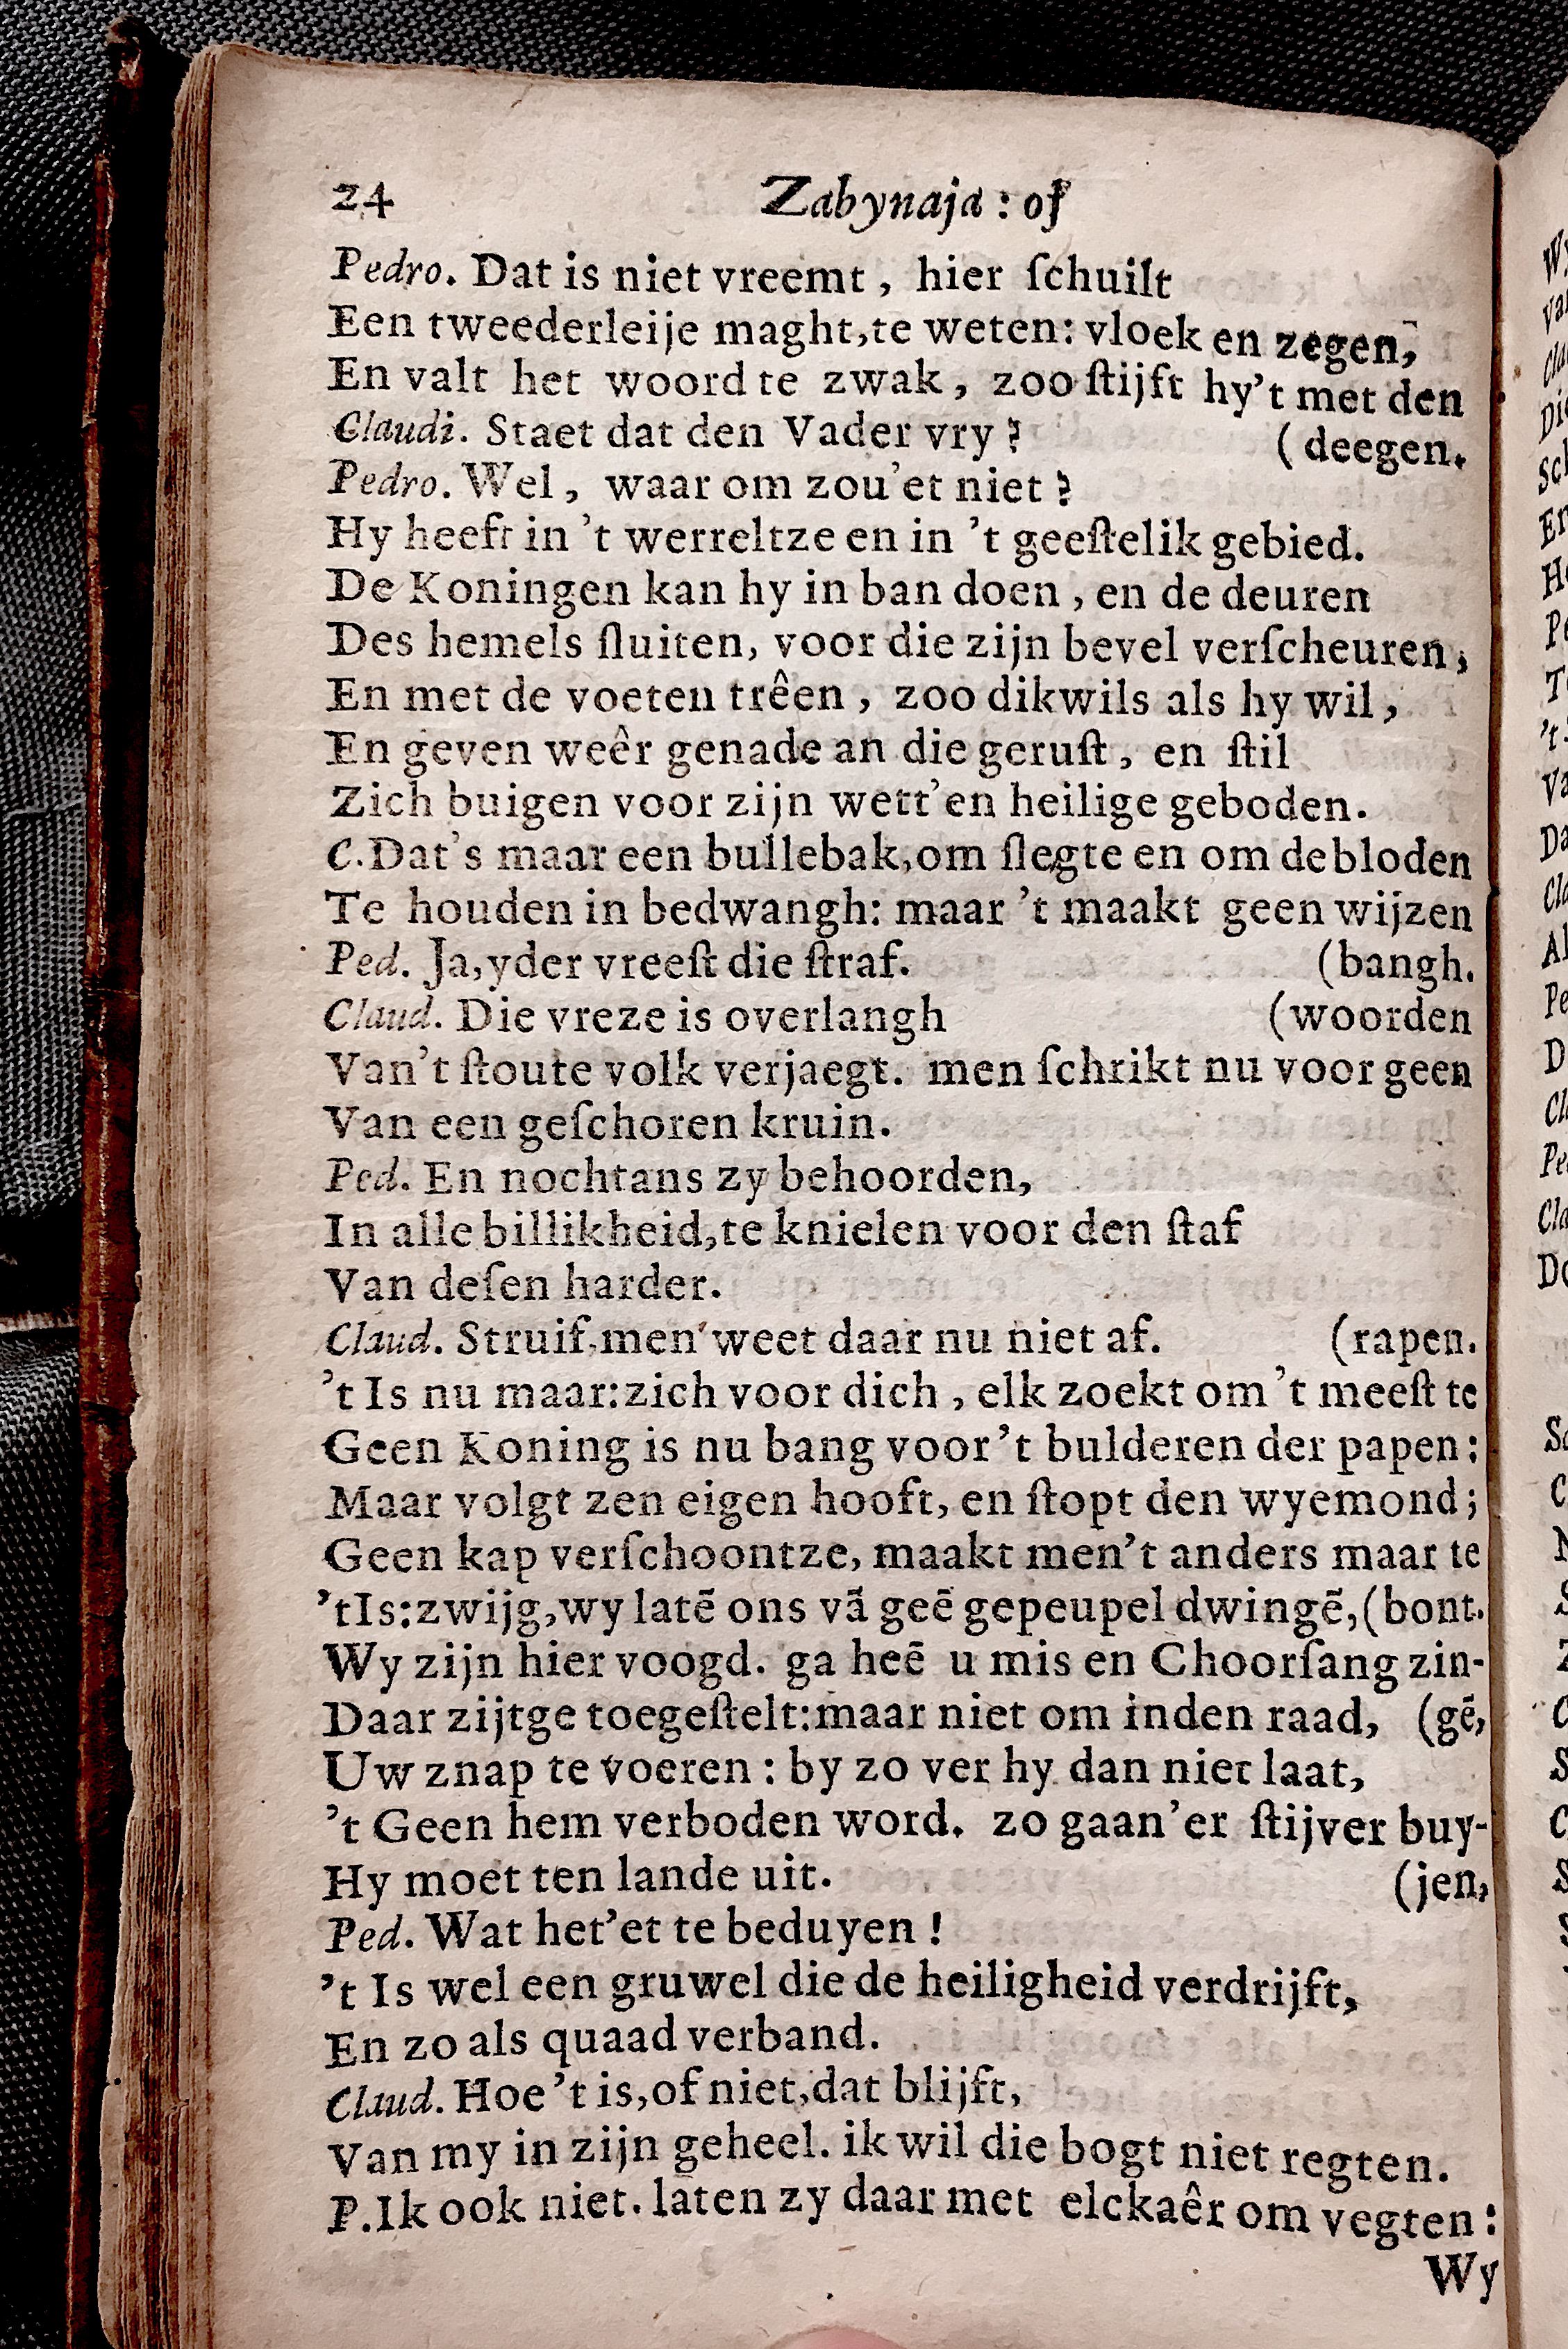 24 Zabynaja : of
Pedro. Dat is niet vreemt, hier ſchuilt
Een tweederleije maght,te weten: vloek en zegen,
En valt het woord te zwak, zoo ſtijft hy't met den
Claudi. Staet dat den Vader vry ? (deegen.
Pedro. Wel, waar om zou'et niet ?
Hy heeft in 't werreltze en in 't geeſtelik gebied.
De Koningen kan hy in ban doen, en de deuren
Des hemels ſluiten, voor die zijn bevel verſcheuren,
En met de voeten trêen, zoo dikwils als hy wil,
En geven weêr genade an die geruſt, en ſtil
Zich buigen voor zijn wett'en heilige geboden.
C.Dat's maar een bullebak,om ſlegte en om de bloden
Te houden in bedwangh: maar 't maakt geen wijzen
Ped. Ja,yder vreeſt die ſtraf. (bangh.
Claud. Die vreze is overlangh (woorden
Van't ſtoute volk verjaegt. men ſchrikt nu voor geen
Van een geſchoren kruin.
Ped. En nochtans zy behoorden,
In alle billikheid,te knielen voor den ſtaf
Van deſen harder.
Claud. Struif,men weet daar nu niet af. (rapen.
't Is nu maar:zich voor dich, elk zoekt om 't meeſt te
Geen Koning is nu bang voor 't bulderen der papen:
Maar volgt zen eigen hooft, en ſtopt den wyemond;
Geen kap verſchoontze, maakt men't anders maar te
'tIs:zwijg,wy latē ons vā geē gepeupel dwingē,(bont.
Wy zijn hier voogd. ga heē u mis en Choorſang zin-
Daar zijtge toegeſtelt:maar niet om inden raad, (gē,
Uw znap te voeren : by zo ver hy dan niet laat,
't Geen hem verboden word. zo gaan'er ſtijver buy-
Hy moet ten lande uit. (jen,
Ped. Wat het'et te beduyen !
't Is wel een gruwel die de heiligheid verdrijft,
En zo als quaad verband.
Claud. Hoe 't is,of niet,dat blijft,
Van my in zijn geheel. ik wil die bogt niet regten.
P.Ik ook niet. laten zy daar met elckaêr om vegten:
Wy